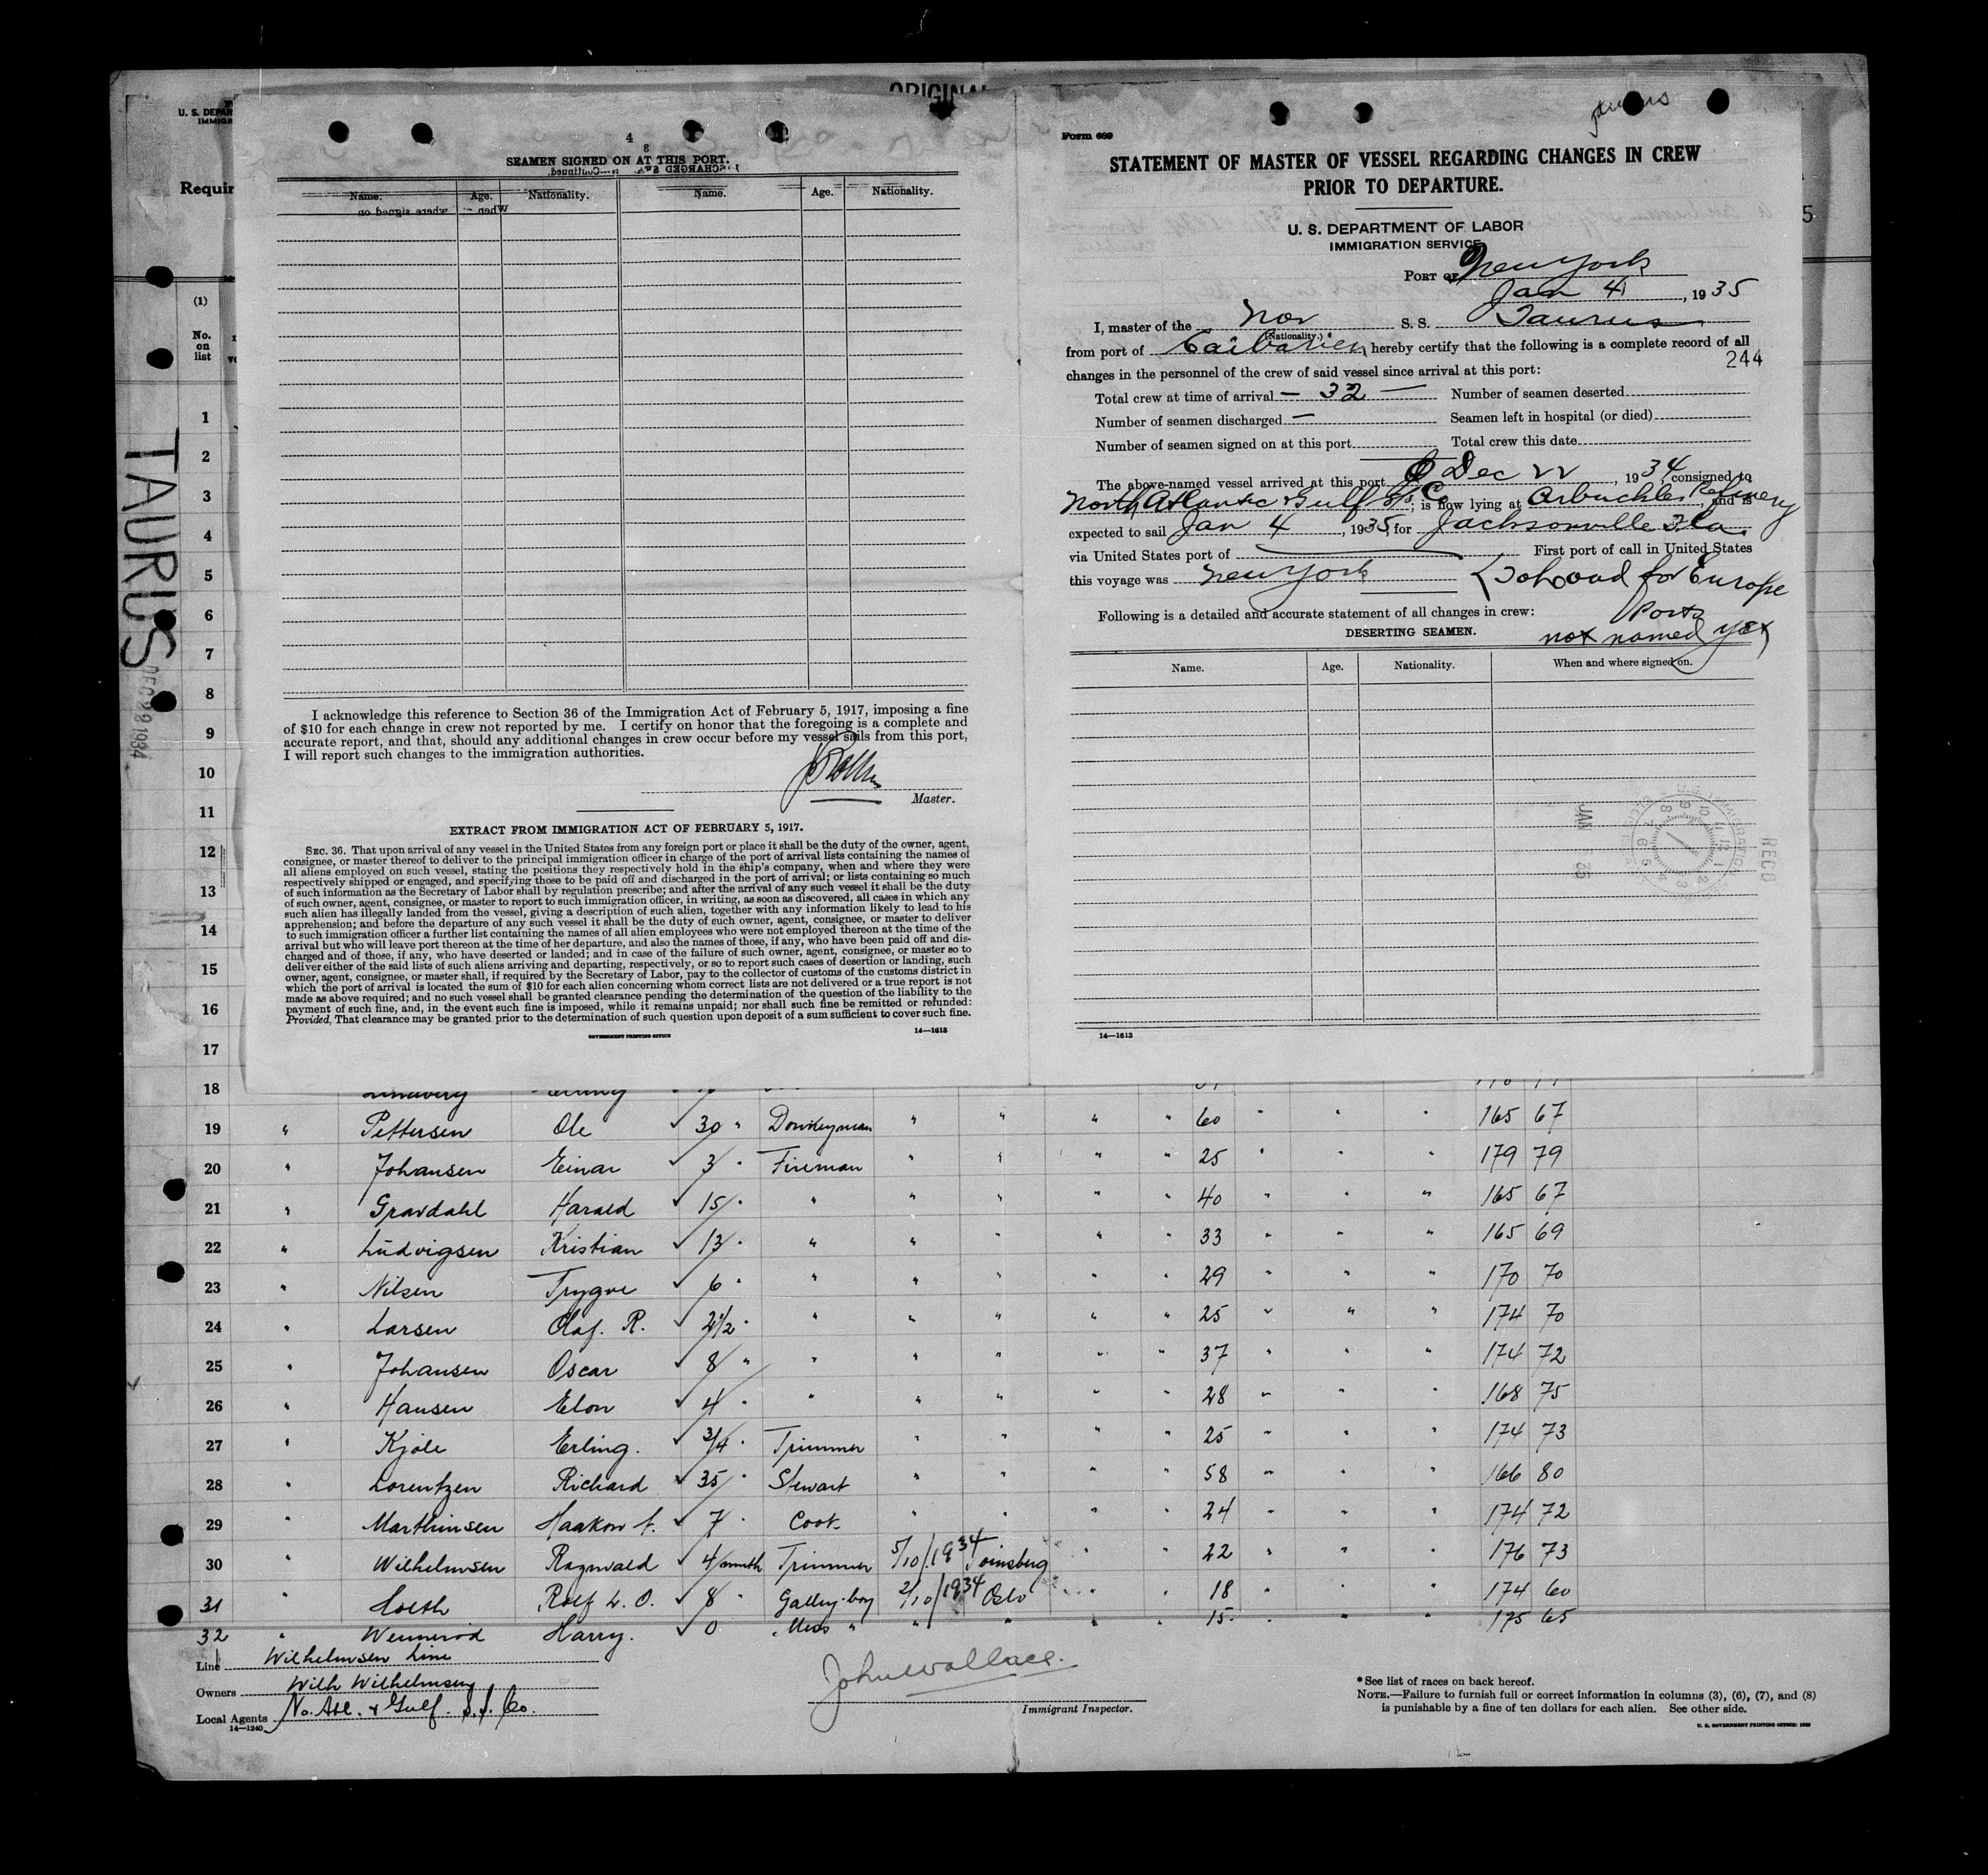 ORIGINAL
U. S. DEPAR
IMMIGR
Requir
(1)
No.
on
list
1
2
3
4
5
6
7
8
9
10
11
12
13
14
15
16
17
18
TAURUS
DEC 22 1934
4
8
SEAMEN SIGNED ON AT THIS PORT.
Name. Age. Nationality. Name. Age. Nationality.
I acknowledge this reference to Section 36 of the Immigration Act of February 5, 1917, imposing a fine
of $10 for each change in crew not reported by me. I certify on honor that the foregoing is a complete and
accurate report, and that, should any additional changes in crew occur before my vessel sails from this port,
I will report such changes to the immigration authorities.
Master.
EXTRACT FROM IMMIGRATION ACT OF FEBRUARY 5, 1917.
SEC. 36. That upon arrival of any vessel in the United States from any foreign port or place it shall be the duty of the owner, agent,
consignee, or master thereof to deliver to the principal immigration officer in charge of the port of arrival lists containing the names of
all aliens employed on such vessel, stating the positions they respectively hold in the ship's company, when and where they were
respectively shipped or engaged, and specifying those to be paid off and discharged in the port of arrival; or lists containing so much
of such information as the Secretary of Labor shall by regulation prescribe; and after the arrival of any such vessel it shall be the duty
of such owner, agent, consignee, or master to report to such immigration officer, in writing, as soon as discovered, all cases in which any
such alien has illegally landed from the vessel, giving a description of such alien, together with any information likely to lead to his
apprehension; and before the departure of any such vessel it shall be the duty of such owner, agent, consignee, or master to deliver
to such immigration officer a further list containing the names of all alien employees who were not employed thereon at the time of the
arrival but who will leave port thereon at the time of her departure, and also the names of those, if any, who have been paid off and dis-
charged and of those, if any, who have deserted or landed; and in case of the failure of such owner, agent, consignee, or master so to
deliver either of the said lists of such aliens arriving and departing, respectively, or so to report such cases of desertion or landing, such
owner, agent, consignee, or master shall, if required by the Secretary of Labor, pay to the collector of customs of the customs district in
which the port of arrival is located the sum of $10 for each alien concerning whom correct lists are not delivered or a true report is not
made as above required; and no such vessel shall be granted clearance pending the determination of the question of the liability to the
payment of such fine, and, in the event such fine is imposed, while it remains unpaid; nor shall such fine be remitted or refunded:
Provided, That clearance may be granted prior to the determination of such question upon deposit of a sum sufficient to cover such fine.
GOVERNMENT PRINTING OFFICE 14—1613
Taurus
Form 689
STATEMENT OF MASTER OF VESSEL REGARDING CHANGES IN CREW
PRIOR TO DEPARTURE.
U. S. DEPARTMENT OF LABOR
IMMIGRATION SERVICE
5
PORT OF New York
Jan 4, 1935
I, master of the Nor S. S. Taurus
(Nationality.)
from port of Caibarien, hereby certify that the following is a complete record of all
244
changes in the personnel of the crew of said vessel since arrival at this port:
Total crew at time of arrival — 32 — Number of seamen deserted
Number of seamen discharged — Seamen left in hospital (or died)
Number of seamen signed on at this port Total crew this date
The above-named vessel arrived at this port Dec 22, 1934, consigned to
North Atlantic & Gulf SS Co; is now lying at Arbuckles Refinery and is
expected to sail Jan 4, 1935, for Jacksonville Fla.
via United States port of First port of call in United States
this voyage was New York (To load for Europe
Ports
not named yet)
Following is a detailed and accurate statement of all changes in crew:
DESERTING SEAMEN.
Name. Age. Nationality. When and where signed on.
JAN 35
REC'D
14—1613
19 " Pettersen Ole ✓ 30 " Donkeyman " " " " 60 " " " 165 67
20 " Johansen Einar ✓ 3 " Fireman " " " " 25 " " " 179 79
21 " Gravdahl Harald ✓ 15 " " " " " " 40 " " " 165 67
22 " Ludvigsen Kristian ✓ 13 " " " " " " 33 " " " 165 69
23 " Nilsen Trygve ✓ 6 " " " " " " 29 " " " 170 70
24 " Larsen Olaf. R. ✓ 2½ " " " " " " 25 " " " 174 70
25 " Johansen Oscar ✓ 8 " " " " " " 37 " " " 174 72
26 " Hansen Elon ✓ 4 " " " " " " 28 " " " 168 75
27 " Kjöle Erling. ✓ 3/4 " Trimmer " " " " 25 " " " 174 73
28 " Lorentzen Richard ✓ 35 " Stewart " " " " 58 " " " 166 80
29 " Marthinsen Haakon ✓ 7 " Cook " " " " 24 " " " 174 72
30 " Wilhelmsen Ragnvald ✓ 4/month Trimmer 5/10/1934 Toinsberg " " 22 " " " 176 73
31 " Holth Rolf L. O. ✓ 8 " Galley-boy 2/10/1934 Oslo " " 18 " " " 174 60
32 " Wennerød Harry. ✓ 0 Mess " " " " " 15 " " " 175 65
Line Wilhelmsen Line
Owners Wilh Wilhelmsen
Local Agents No. Atl. & Gulf. S.S. Co.
14—1240
John Wallace.
Immigrant Inspector.
* See list of races on back hereof.
NOTE.—Failure to furnish full or correct information in columns (3), (6), (7), and (8)
is punishable by a fine of ten dollars for each alien. See other side.
U. S. GOVERNMENT PRINTING OFFICE: 1930